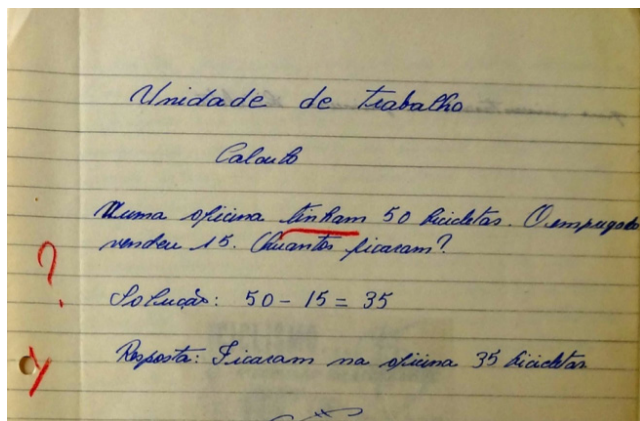 Unidade de trabalho
Calculo
Numa oficina tinham 50 bicicletas. O empregado
vendeu 15. Quantas ficaram?
?
Solução: 50 - 15 = 35
Resposta: Ficaram na oficina 35 bicicletas